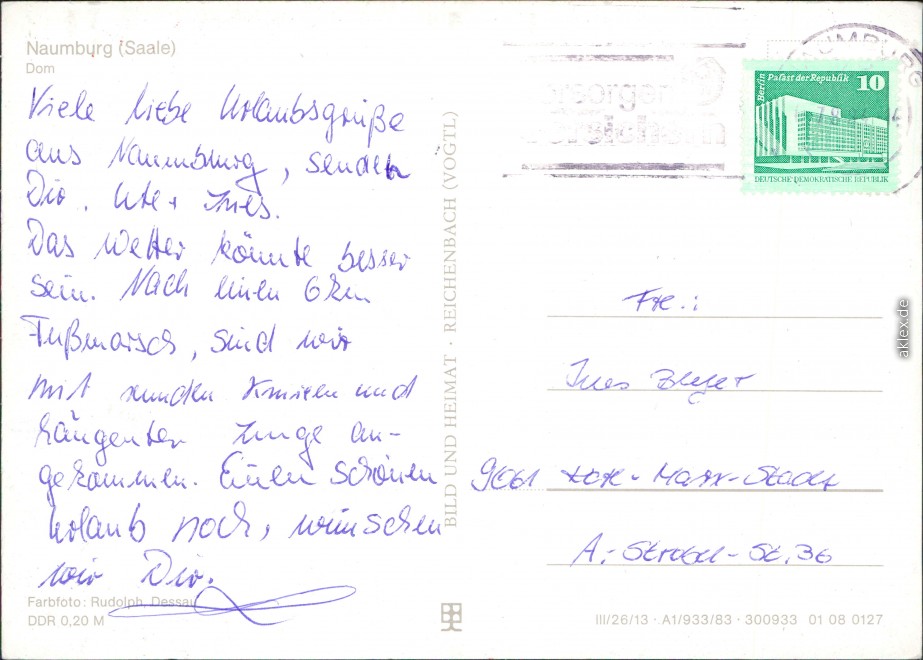 Naumburg (Saale)
Dom
Viele liebe Urlaubsgrüße
aus Naumburg, senden
Dir. Ute + Ines.
Das Wetter könnte besser
sein. Nach einen 6 km
Fußmarsch, sind wir
mit runden Knieen und
hängenter Zunge an-
gekommen. Einen schönen
Urlaub noch, wünschen
wir Dir.
Farbfoto: Rudolph, Dessau
DDR 0,20 M
BILD UND HEIMAT · REICHENBACH (VOGTL)
NAUMBURG
Berlin Palast der Republik 10
DEUTSCHE DEMOKRATISCHE REPUBLIK
Frl.:
Ines
9061 Karl-Marx-Stadt
A.-Strobel-St. 36
III/26/13 · A1/933/83 · 300933 01 08 0127
aklex.de